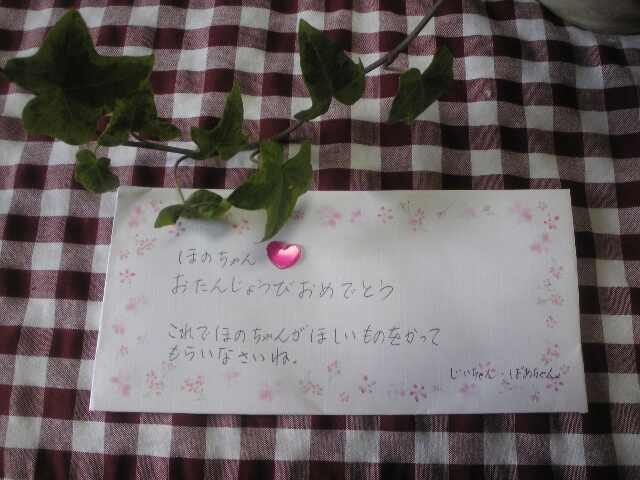 ほのちゃん
おたんじょうびおめでとう
これでほのちゃんがほしいものをかって
もらいなさいね。
じいちゃん・ばあちゃん